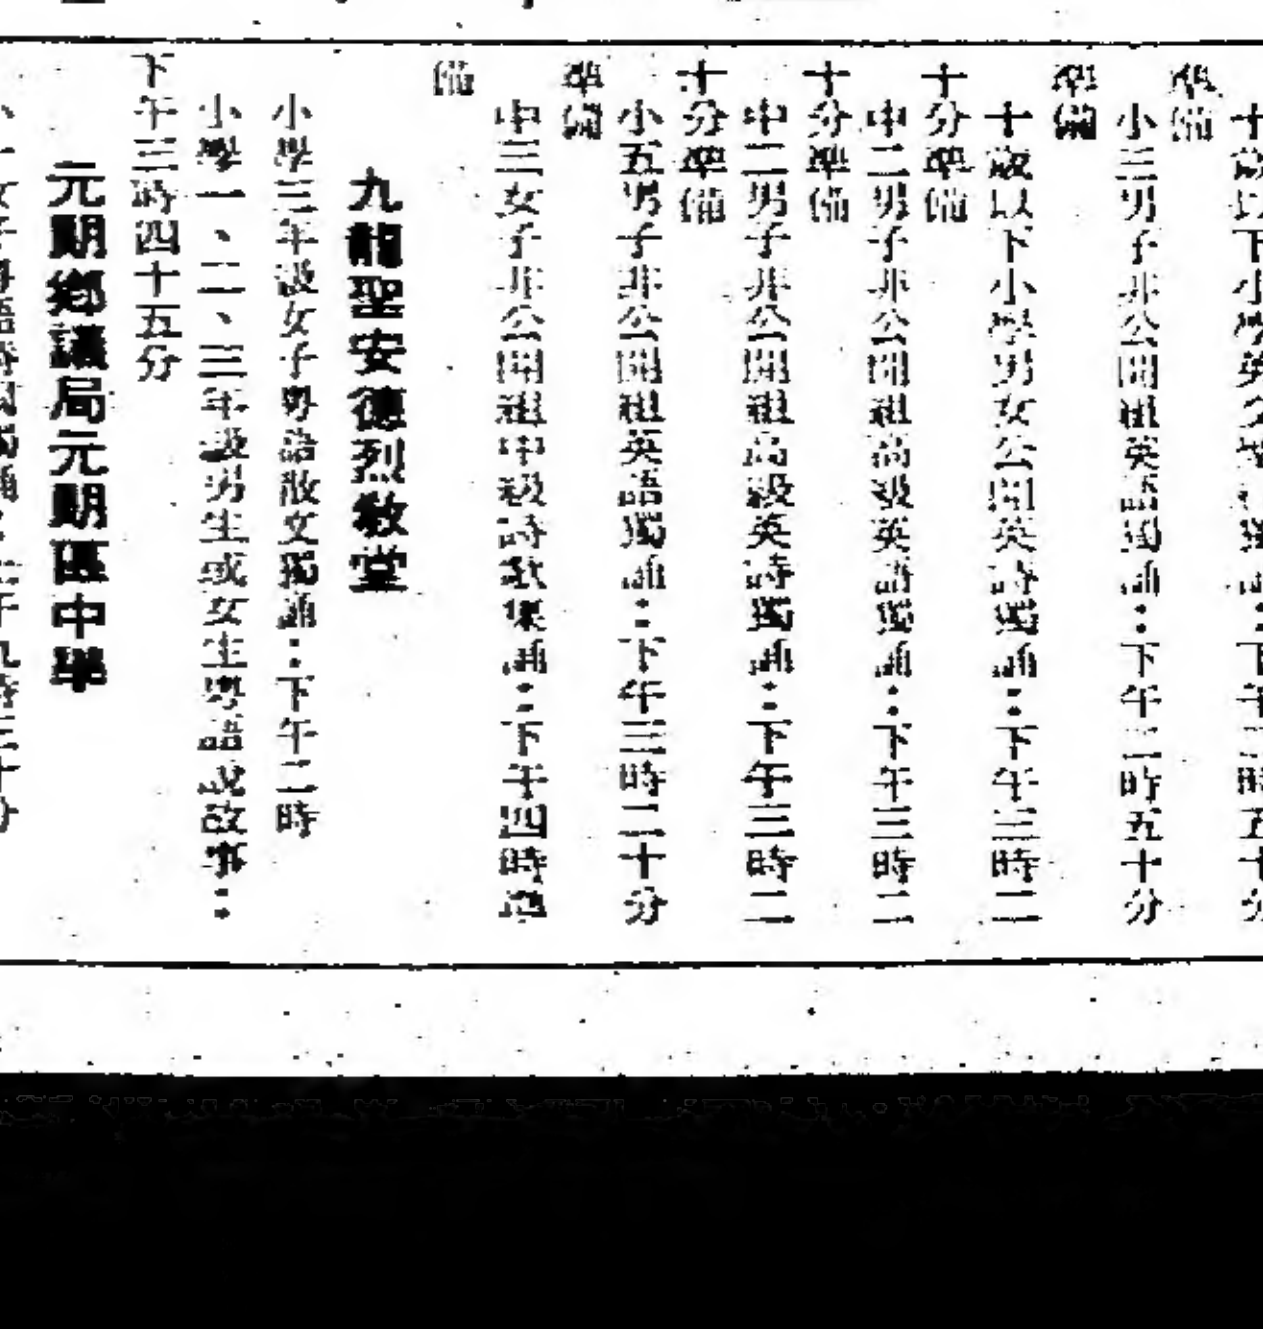 準備
小三男子非公開組英語獨誦：下午二時五十分
準備
十歲以下小學男女公開英詩獨誦：下午三時二
十分準備
中二男子非公開組高級英語獨誦：下午三時二
十分準備
中二男子非公開組高級英詩獨誦：下午三時二
十分準備
小五男子非公開組英語獨誦：下午三時二十分
準備
中三女子非公開組中級詩歌集誦：下午四時準
備
九龍聖安德烈教堂
小學三年級女子粵語散文獨誦：下午二時
小學一、二、三年級男生或女生粵語說故事：
下午三時四十五分
元朗鄉議局元朗區中學